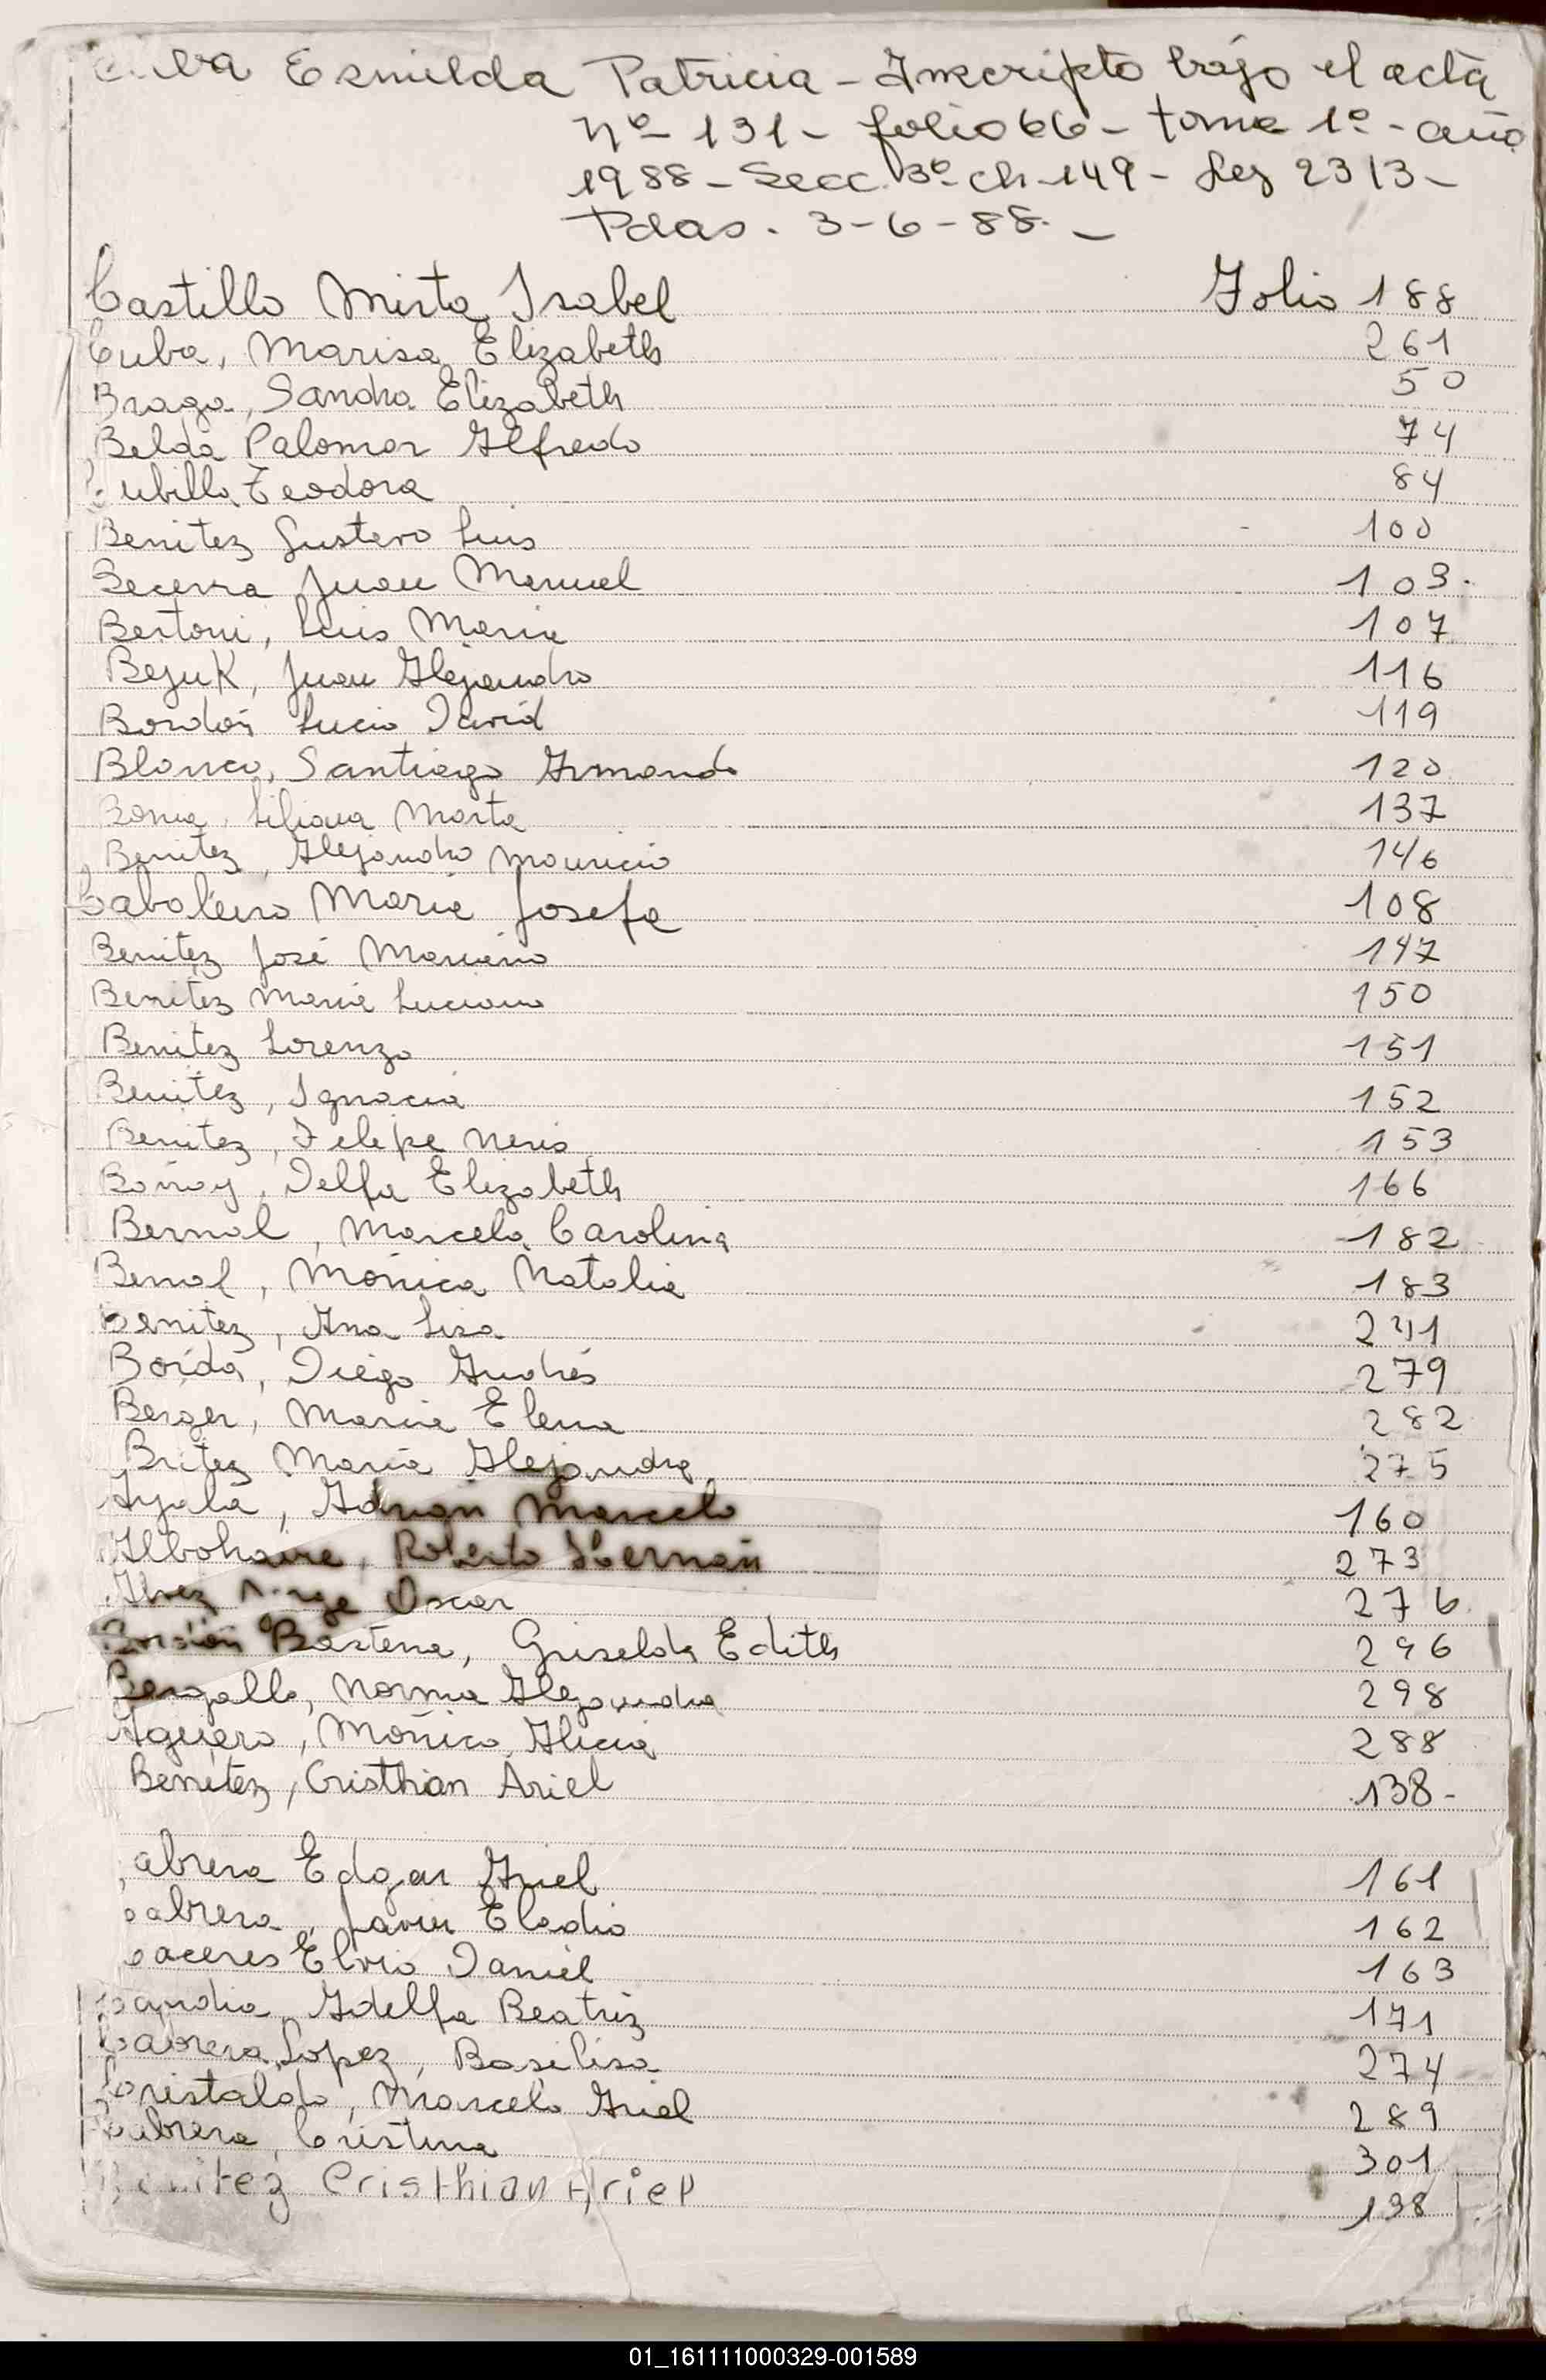 Esmilda Patricia - Inscripto bajo el acta
Nº 131 - folio 66 - tomo 1º - año
1988 - Secc. 3º ch-149 - Ley 2313 -
Pdas. 3-6-88. -
Castillo Mirta Isabel Folio 188
Cuba, Marisa Elizabeth 261
Braga, Sandra Elizabeth 50
Belda Palomar Alfredo 74
Cubilla Teodora 84
Benitez Gustavo Luis 100
Becerra Juan Manuel 103.
Bertoni, Luis Maria 107
Bejuk, Juan Alejandro 116
Bordón Lucio David 119
Blanco, Santiago Armando 120
Liliana Marta 137
Benitez, Alejandro Mauricio 146
Maria Josefa 108
Benitez José Marciano 147
Benitez Maria Luciana 150
Benitez Lorenzo 151
Benitez, Ignacia 152
Benitez, Felipe Neris 153
Delfa Elizabeth 166
Bernal, Marcela Carolina 182
Bernal, Mónica Natalia 183
Benitez, Ana Lisa 241
Borda, Diego Andrés 279
Berger, Maria Elena 282
Britez Maria Alejandra 275
Ayala, Adrian Marcelo 160
Albohaire, Roberto Hernán 273
Oscar 276
Bordón Bastena, Griselda Edith 296
Bergallo, Norma Alejandra 298
Aguero, Mónica Alicia 288
Benitez, Cristhian Ariel 138-
abrera Edgar Ariel 161
Cabrera, Javier Eladio 162
Caceres Elvio Daniel 163
Adelfa Beatriz 171
Cabrera Lopez, Basilisa 274
Cristaldo, Marcelo Ariel 289
Cabrera, Cristina 301
Benitez Cristhian Ariel 138
01_161111000329-001589